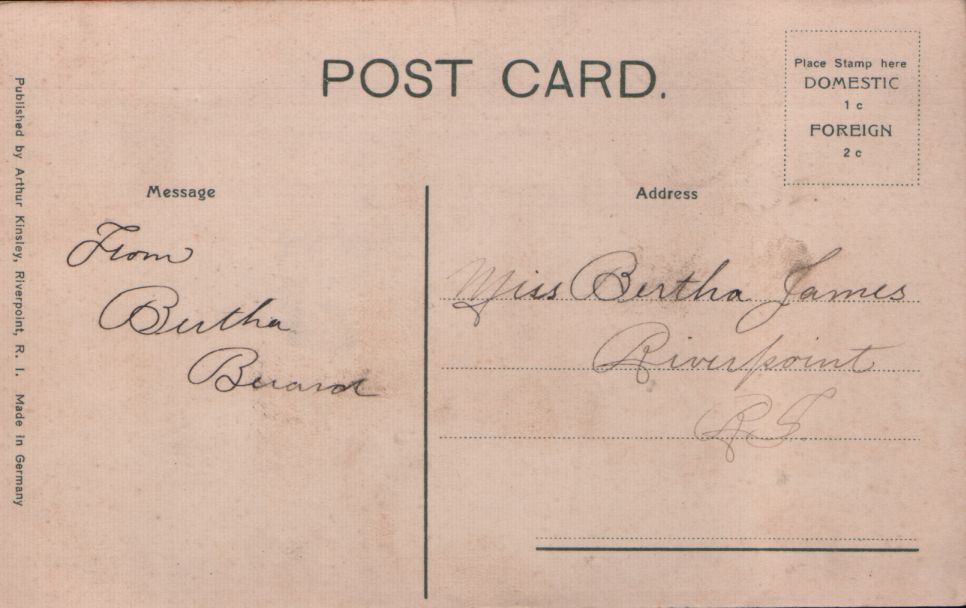 POST CARD.
Place Stamp here
DOMESTIC
1 c
FOREIGN
2 c
Message
From
Bertha
Berard
Address
Miss Bertha James
Riverpoint
R.I.
Published by Arthur Kinsley, Riverpoint, R. I. Made in Germany